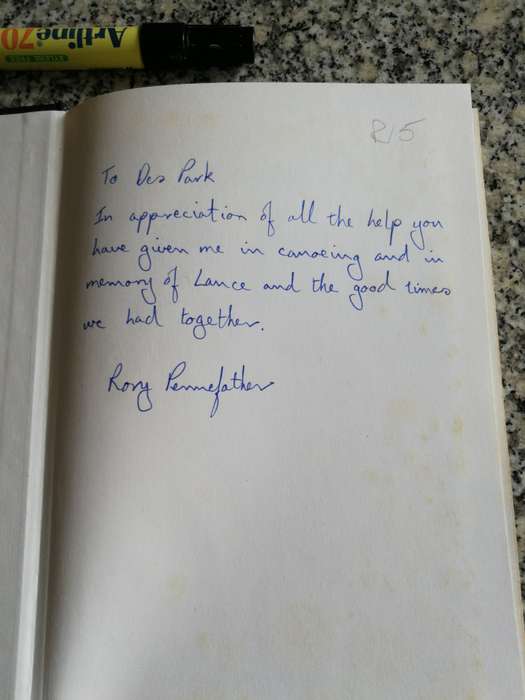 Artline 70
XYLENE FREE
R15
To Des Park
In appreciation of all the help you
have given me in canoeing and in
memory of Lance and the good times
we had together.
Rory Pennefather